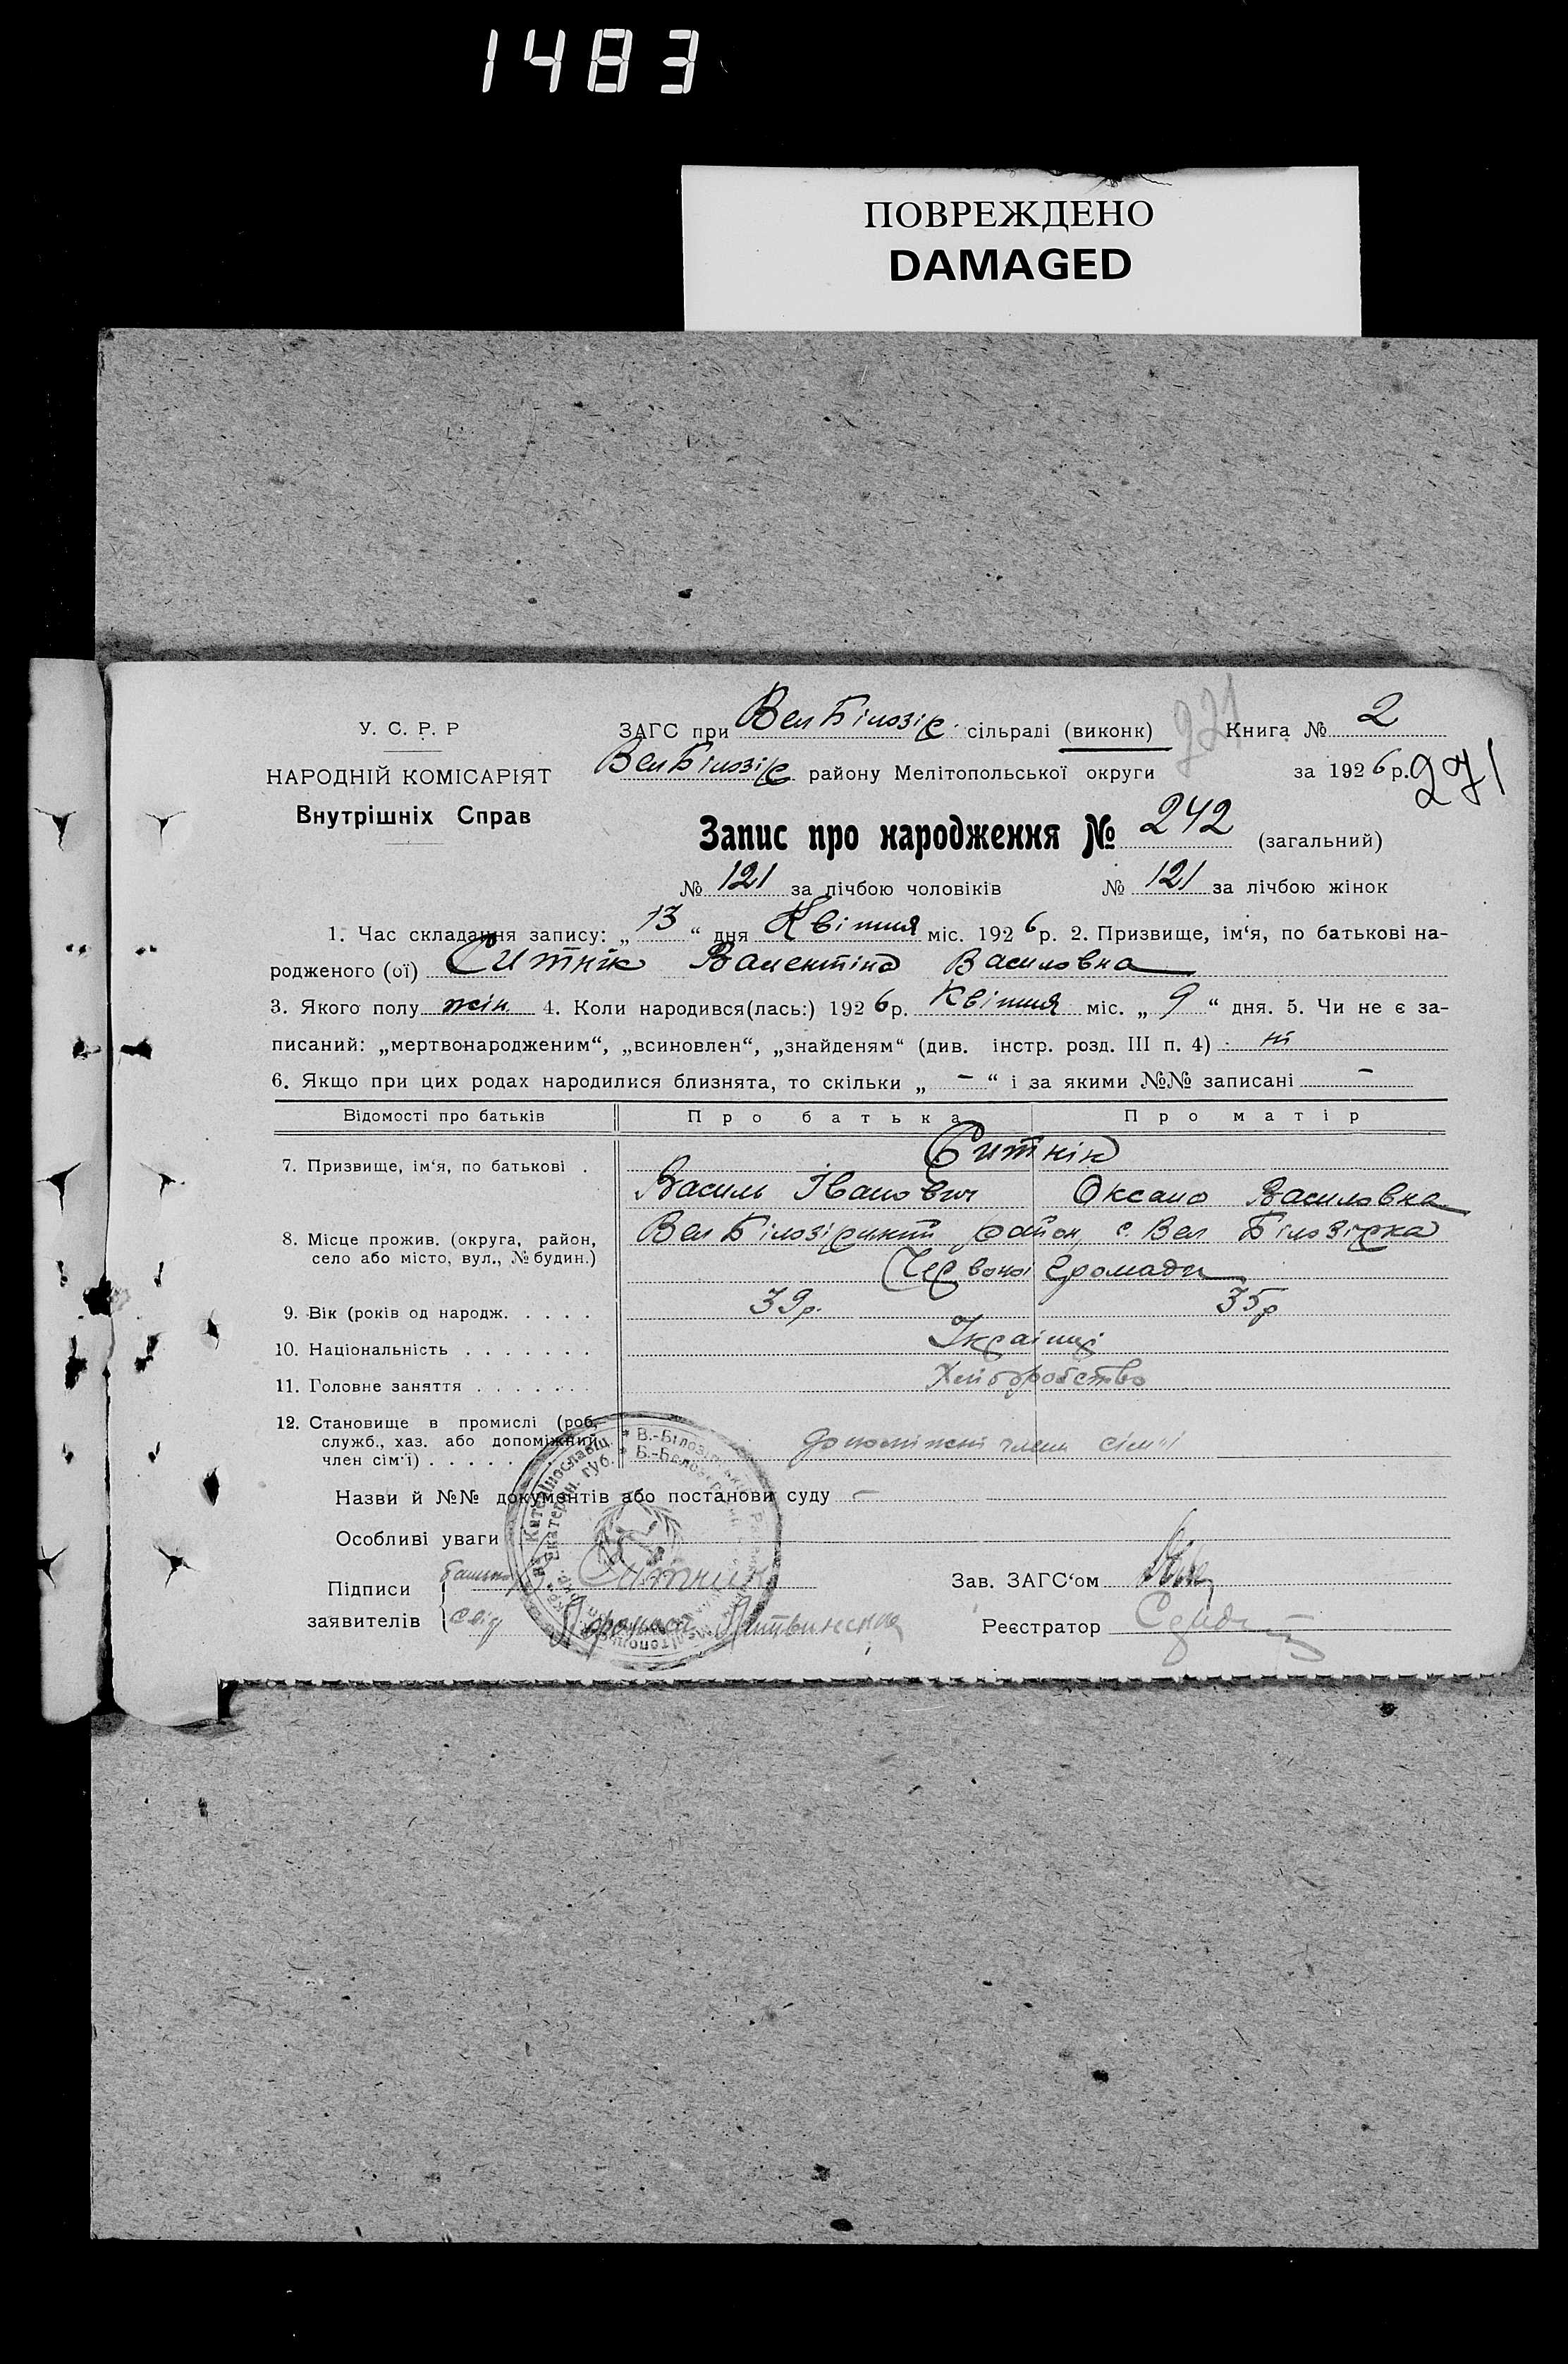 1483
ПОВРЕЖДЕНО
DAMAGED
У. С. Р. Р
НАРОДНІЙ КОМІСАРІЯТ
Внутрішніх Справ
ЗАГС при Вел Білозір. сільраді (виконк)
221
Книга № 2
Вел Білозір. району Мелітопольської округи
за 1926 р.
271
Запис про народження № 242 (загальний)
№ 121 за лічбою чоловіків № 121 за лічбою жінок
1. Час складання запису: „ 13 “ дня Квітня міс. 1926 р. 2. Призвище, ім‘я, по батькові на-
родженого (ої) Ситнік Валентіна Василовна
3. Якого полу жін. 4. Коли народився(лась:) 1926 р. Квітня міс. „ 9 “ дня. 5. Чи не є за-
писаний: „мертвонародженим“, „всиновлен“, „знайденям“ (див. інстр. розд. III п. 4)
6. Якщо при цих родах народилися близнята, то скільки „ – “ і за якими №№ записані –
Відомості про батьків Про батька Про матір
7. Призвище, ім‘я, по батькові . Ситнік
Василь Іванович Оксана Василовна
8. Місце прожив. (округа, район, село або місто, вул., № будин.) Вел Білозірський район, с. Вел Білозірка
Червоної Громади
9. Вік (років од народж. . . . . 39 р. 35 р
10. Національність . . . . . . . Українці
11. Головне заняття . . . . . . . Хліборобство
12. Становище в промислі (роб., служб., хаз. або допоміжний член сім‘ї) . . . . . допоміжні члени сім'ї
Назви й №№ документів або постанови суду –
Особливі уваги
Підписи заявителів батько Ситник
свід Литвиненко
Зав. ЗАГС‘ом
Реєстратор